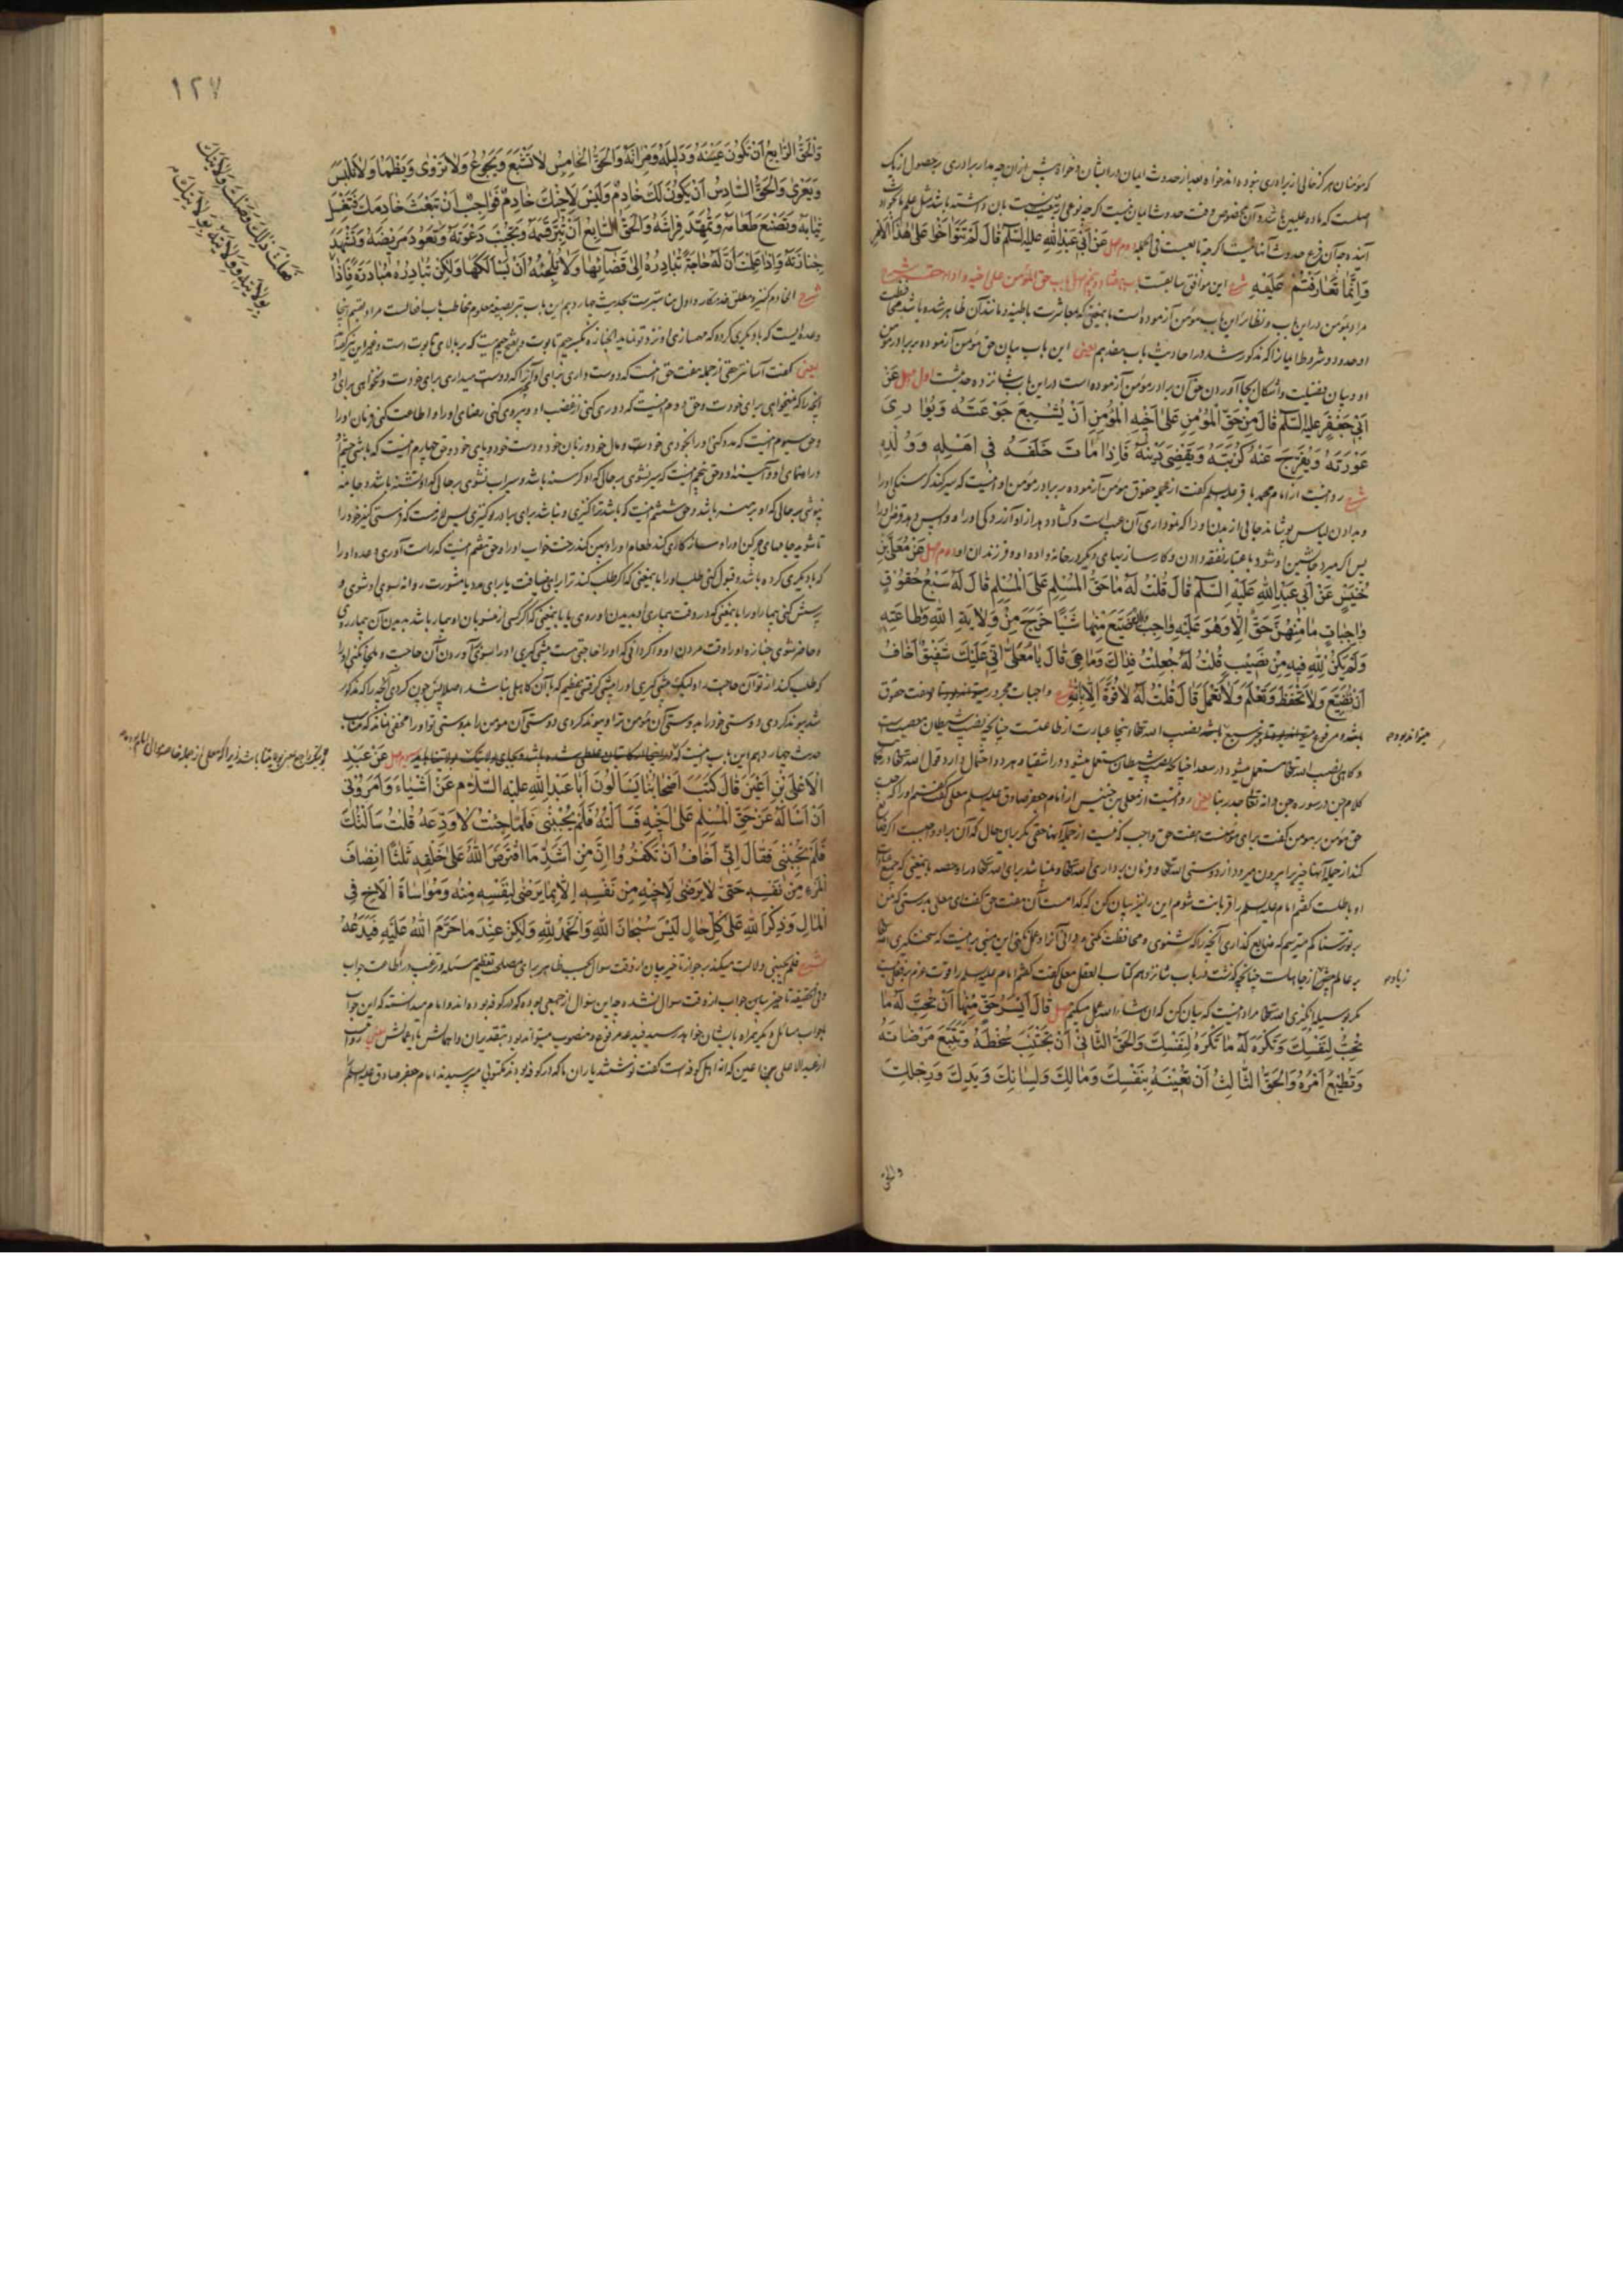 که مؤمنان هرگز خالی از برادری نبوده‌اند خواه بعد از حدوث ایمان در ایشان و خواه پیش از آن چه مدار برادری بر حصول از یک
اصلست که ماده علیین باشد و آن مخصوص وقت حدوث ایمان نیست
آینده چه آن فرع حدوث آنهاست اگرچه تابعیت فی الجمله دوم اصل عَنْ أَبِي عَبْدِ اللهِ عليه السّلم قَالَ لَمْ تَتَوَاخَوْا عَلىٰ هٰذَا الْأَمْرِ
وَإِنَّمَا تَعَارَفْتُمْ عَلَيْهِ شرح این موافق سابقست باب هفتاد و پنجم اصل باب حق المؤمن علی اخیه و اداء حقه شرح
مراد بمؤمن در این باب و نظایر این باب مؤمن آزموده است باینمعنی که معاشرت باطنیه و مانند آن ظاهر شده باشد
او حدود و شروط ایمان که مذکور شد در احادیث باب هفدهم یعنی این باب بیان حق مؤمن آزموده بر برادر مؤمن
او و بیان فضیلت و اشکال بجا آوردن حق آن برادر مؤمن آزموده است در این باب شانزده حدیثست اول اصل عَنْ
أَبِي جَعْفَرٍ عليه السّلم قَالَ مِنْ حَقِّ الْمُؤْمِنِ عَلىٰ أَخِيهِ الْمُؤْمِنِ أَنْ يُشْبِعَ جَوْعَتَهُ وَيُوَارِيَ
عَوْرَتَهُ وَيُفَرِّجَ عَنْهُ كُرْبَتَهُ وَيَقْضِيَ دَيْنَهُ فَإِذَا مَاتَ خَلَفَهُ فِي أَهْلِهِ وَوُلْدِهِ
شرح روایتست از امام محمد باقر علیه السلم گفت از جمله حقوق مؤمن آزموده بر برادر مؤمن او اینست که سیر کند گرسنگی او را
و بدادن لباس پوشاند جایی از بدن او را که نمودار آن عیب است و گشاد دهد از او آزردگی او را و واپس دهد قرض او را
پس اگر میرد جانشین او شود باعتبار نفقه دادن و کارسازیهای دیگر در خانواده او و فرزندان او دوم اصل عَنْ مُعَلَّى بْنِ
خُنَيْسٍ عَنْ أَبِي عَبْدِ اللهِ عَلَيْهِ السَّلَمُ قَالَ قُلْتُ لَهُ مَا حَقُّ الْمُسْلِمِ عَلَى الْمُسْلِمِ قَالَ لَهُ سَبْعُ حُقُوقٍ
وَاجِبَاتٍ مَا مِنْهُنَّ حَقٌّ إِلَّا وَهُوَ عَلَيْهِ وَاجِبٌ إِنْ ضَيَّعَ مِنْهَا شَيْئًا خَرَجَ مِنْ وَلَايَةِ اللهِ وَطَاعَتِهِ
وَلَمْ يَكُنْ لِلّٰهِ فِيهِ مِنْ نَصِيبٍ قُلْتُ لَهُ جُعِلْتُ فِدَاكَ وَمَا هِيَ قَالَ يَا مُعَلَّى إِنِّي عَلَيْكَ شَفِيقٌ أَخَافُ
أَنْ تُضَيِّعَ وَلَا تَحْفَظَ وَتَعْلَمَ وَلَا تَعْمَلَ قَالَ قُلْتُ لَهُ لَا قُوَّةَ إِلَّا بِاللهِ شرح واجبات مجرور صفت حقوق
باشد و مرفوع خبر سبع باشد نصیب الله تعالی اینجا عبارت از طاعتست چنانچه نصیب شیطان معصیت است
و گاهی نصیب الله تعالی مستعمل میشود در سعدا چنانکه نصیب شیطان مستعمل میشود در اشقیا و هر دو احتمال دارد قول الله تعالی در حکایت
کلام جن در سوره جن وانه تعالی جد ربنا یعنی روایتست از معلی بن خنیس از امام جعفر صادق علیه السلم معلی گفت گفتم او را که چیست
حق مؤمن بر مؤمن گفت برای مؤمنست هفت حق واجب که نیست از جمله آنها حقی مگر بر این حال که آن بر او واجبست اگر ضایع
کند از جمله آنها چیزی را بیرون میرود از دوستی الله تعالی و فرمان برداری الله تعالی و نمیباشد برای الله تعالی در او حصه باینمعنی که جمیع عبادات
او باطلست گفتم امام علیه السلم را قربانت شوم این را نیز بیان کن که کدامست آن هفت حق گفت ای معلی بدرستی که من
بر تو ترسناکم میترسم که ضایع گذاری آنچه را که شنوی و محافظت نکنی و دانی آنرا و عمل نکنی این مبنی بر اینست که سختگیری الله تعالی
بر عالم بیش از جاهلست چنانچه گذشت در باب شانزدهم کتاب العقل معلی گفت گفتم امام علیه السلم را قوت عزم بر نیست
مگر بوسیله انگیزی الله تعالی مراد اینست که بیان کن که ان شاء الله عمل میکنم اصل قَالَ أَيْسَرُ حَقٍّ مِنْهَا أَنْ تُحِبَّ لَهُ مَا
تُحِبُّ لِنَفْسِكَ وَتَكْرَهَ لَهُ مَا تَكْرَهُ لِنَفْسِكَ وَالْحَقُّ الثَّانِي أَنْ تَجْتَنِبَ سَخَطَهُ وَتَتَّبِعَ مَرْضَاتَهُ
وَتُطِيعَ أَمْرَهُ وَالْحَقُّ الثَّالِثُ أَنْ تُعِينَهُ بِنَفْسِكَ وَمَالِكَ وَلِسَانِكَ وَيَدِكَ وَرِجْلِكَ
والحق
میتواند بود
زیاده
١٢٧
وَالْحَقُّ الرَّابِعُ أَنْ تَكُونَ عَيْنَهُ وَدَلِيلَهُ وَمِرْآتَهُ وَالْحَقُّ الْخَامِسُ لَا تَشْبَعَ وَيَجُوعُ وَلَا تَرْوٰى وَيَظْمَأُ وَلَا تَلْبَسَ
وَيَعْرىٰ وَالْحَقُّ السَّادِسُ أَنْ يَكُونَ لَكَ خَادِمٌ وَلَيْسَ لِأَخِيكَ خَادِمٌ فَوَاجِبٌ أَنْ تَبْعَثَ خَادِمَكَ فَتَغْسِلَ
ثِيَابَهُ وَتَصْنَعَ طَعَامَهُ وَتُمَهِّدَ فِرَاشَهُ وَالْحَقُّ السَّابِعُ أَنْ تُبِرَّ قَسَمَهُ وَتُجِيبَ دَعْوَتَهُ وَتَعُودَ مَرِيضَهُ وَتَشْهَدَ
جِنَازَتَهُ وَإِذَا عَلِمْتَ أَنَّ لَهُ حَاجَةً تُبَادِرُهُ إِلىٰ قَضَائِهَا وَلَا تُلْجِئُهُ أَنْ يَسْأَلَكَهَا وَلٰكِنْ تُبَادِرُهُ مُبَادَرَةً فَإِذَا
فَعَلْتَ ذٰلِكَ وَصَلْتَ وَلَايَتَكَ
بِوَلَايَتِهِ وَوَلَايَتَهُ بِوَلَايَتِكَ
شرح الخادم کنیز و مطلق خدمتکار و اول مناسبترست بحدیث چهاردهم این باب تبر بصیغه معلوم مخاطب باب افعالست مراد بقسم اینجا
وعده‌ایست که با دیگری کرده
یعنی گفت آسانتر حقی از جمله هفت حق اینست که دوست داری برای او آنچه را که دوست میداری برای خودت و نخواهی برای او
آنچه را که نمیخواهی برای خودت و حق دوم اینست که دوری کنی از غضب او و پیروی کنی رضای او را و اطاعت کنی فرمان او را
و حق سیوم اینست که مدد کنی او را بخودی خودت و مال خود و زبان خود و دست خود و پای خود و حق چهارم اینست که باشی چشم او
و راهنمای او و آیینه او و حق پنجم اینست که سیر نشوی بر حالی که او گرسنه باشد و سیراب نشوی بر حالی که او تشنه باشد و جامه
نپوشی بر حالی که او برهنه باشد و حق ششم اینست که باشد ترا کنیزی و نباشد برای برادر تو کنیزی پس لازمست که فرستی کنیز خود را
تا شوید جامهای چرکین او را و سازکاری کند طعام او را و پهن کند رخت خواب او را و حق هفتم اینست که راست آوری وعده او را
که با دیگری کرده باشد و قبول کنی طلب او را باینمعنی که اگر طلب کند ترا برای ضیافت یا برای مدد یا مشورت روانه سوی او شوی و
پرسش کنی بیمار او را باینمعنی که در وقت بیماری او بدیدن او روی یا باینمعنی که اگر کسی از منسوبان او بیمار باشد بدیدن آن بیمار روی
و حاضر شوی جنازه او را وقت مردن او و اگر دانی که او را حاجتی هست پیشی گیری او را سوی بر آوردن آن حاجت و ملجأ نکنی او را
که طلب کند از تو آن حاجت را و لیک پیشی گیری او را پیشی گرفتنی عظیم که با آن کاهلی نباشد اصلا پس چون کردی آنچه را که مذکور
شد پیوند کردی دوستی خود را بدوستی آن مؤمن ترا و پیوند کردی دوستی آن مؤمن را بدوستی تو او را
حدیث چهاردهم این باب اینست که سیوم اصل عَنْ عَبْدِ
الْأَعْلَى بْنِ أَعْيَنَ قَالَ كَتَبَ أَصْحَابُنَا يَسْأَلُونَ أَبَا عَبْدِ اللهِ عليه السّلام عَنْ أَشْيَاءَ وَأَمَرُونِي
أَنْ أَسْأَلَهُ عَنْ حَقِّ الْمُسْلِمِ عَلىٰ أَخِيهِ فَسَأَلْتُهُ فَلَمْ يُجِبْنِي فَلَمَّا جِئْتُ لِأُوَدِّعَهُ قُلْتُ سَأَلْتُكَ
فَلَمْ تُجِبْنِي فَقَالَ إِنِّي أَخَافُ أَنْ تَكْفُرُوا إِنَّ مِنْ أَشَدِّ مَا افْتَرَضَ اللهُ عَلىٰ خَلْقِهِ ثَلٰثًا إِنْصَافَ
الْمَرْءِ مِنْ نَفْسِهِ حَتّىٰ لَا يَرْضىٰ لِأَخِيهِ مِنْ نَفْسِهِ إِلَّا بِمَا يَرْضىٰ لِنَفْسِهِ مِنْهُ وَمُوَاسَاةَ الْأَخِ فِي
الْمَالِ وَذِكْرَ اللهِ عَلىٰ كُلِّ حَالٍ لَيْسَ سُبْحَانَ اللهِ وَالْحَمْدُ لِلّٰهِ وَلٰكِنْ عِنْدَ مَا حَرَّمَ اللهُ عَلَيْهِ فَيَدَعُهُ
شرح فلم یجبنی دلالت میکند بر جواز تأخیر بیان از وقت سؤال بحسب ظاهر برای مصلحت تعظیم مسئله و ترغیب در اطاعت جواب
و فی الحقیقه تأخیر بیان جواب از وقت سؤال نشده چه این سؤال از جمعی بوده که در کوفه بوده‌اند و امام میدانسته که این جواب
بجواب مسائل دیگر همراه بایشان خواهد رسید فیدعه مرفوع و منصوب میتواند بود
از عبد الاعلی بن اعین که از اهل کوفه است گفت نوشتند یاران ما که در کوفه بودند مکتوبی میپرسیدند امام جعفر صادق علیه السلم